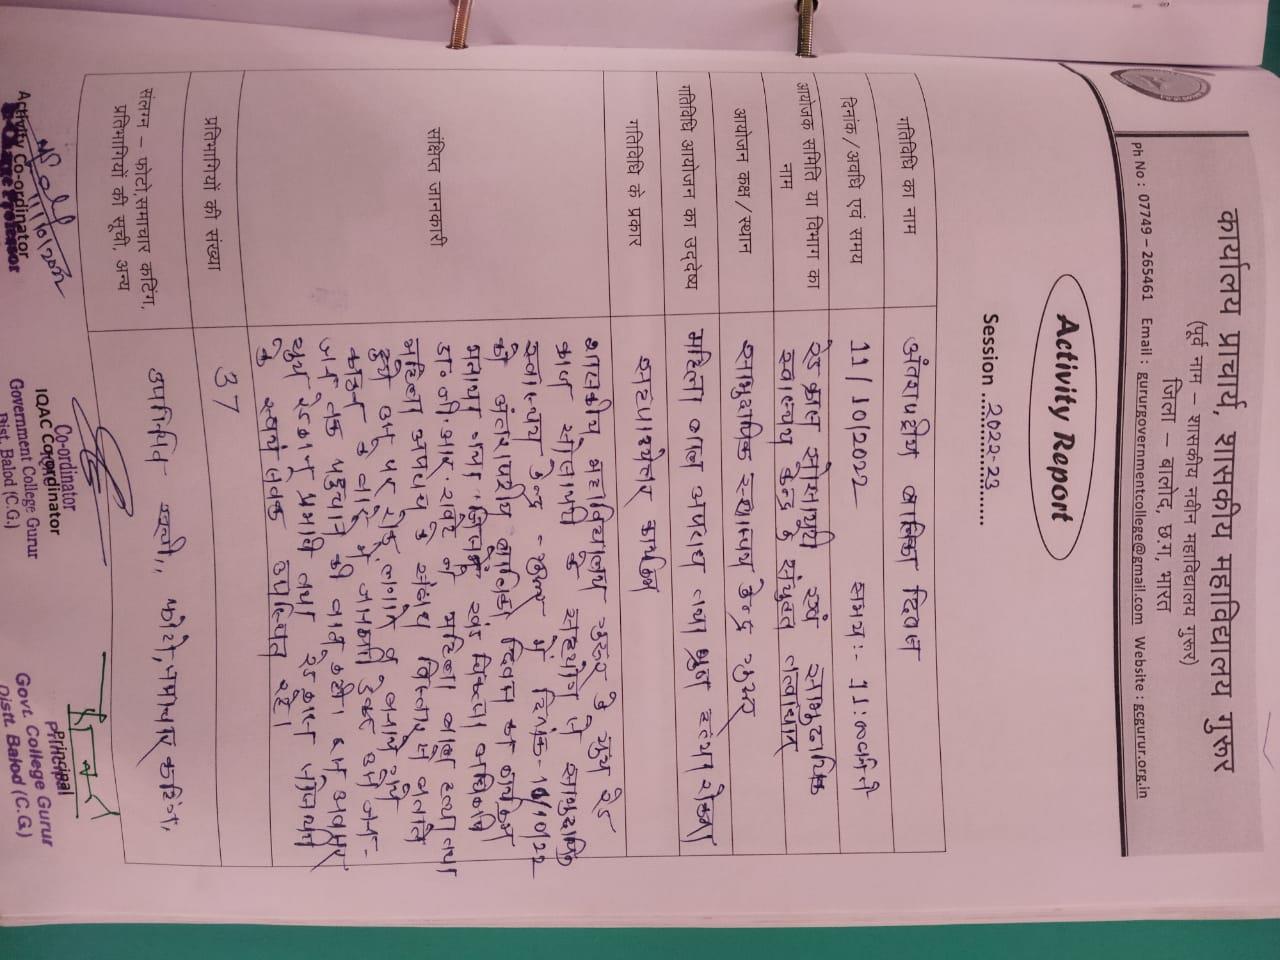 कार्यालय प्राचार्य, शासकीय महाविद्यालय गुरूर
(पूर्व नाम – शासकीय नवीन महाविद्यालय गुरूर)
जिला – बालोद, छग, भारत
Ph No : 07749 – 265461 Email : gururgovernmentcollege@gmail.com Website : gcgurur.org.in
Activity Report
Session 2022-23
गतिविधि का नाम
अंतराष्ट्रीय बालिका दिवस
दिनांक/अवधि एवं समय
11/10/2022 समय:- 11:00
आयोजक समिति या विभाग का नाम
रेडक्रास सोसायटी एवं सामुदायिक
स्वास्थ्य केन्द्र के संयुक्त तत्वाधान
आयोजन कक्ष/स्थान
सामुदायिक स्वास्थ्य केन्द्र गुरूर
गतिविधि आयोजन का उद्देष्य
महिला बाल अपराध तथा भ्रूण हत्या रोकना
गतिविधि के प्रकार
कार्यक्रम
संक्षिप्त जानकारी
शासकीय महाविद्यालय गुरूर के यूथ रेड
क्रास सोसायटी के सहयोग से सामुदायिक
स्वास्थ्य केन्द्र - गुरूर में दिनांक- 11/10/22
को अंतराष्ट्रीय बालिका दिवस का कार्यक्रम
मनाया गया। जिसमें खंड चिकित्सा अधिकारी
डॉ० जी.आर. रावटे ने महिला भ्रूण हत्या तथा
महिला अपराध के संबंध विस्तार से बताते
हुये उन पर रोक लगाने व बनाये गये
कानून के बारे में जानकारी देकर उसे जन-
जन तक पहुंचाने की बात कही। इस अवसर
यूथ रेडक्रास प्रभारी तथा रेडक्रास वालिंटियर्स
के स्वयं सेवक उपस्थित रहे।
प्रतिभागियों की संख्या
37
संलग्न – फोटो,समाचार कटिंग,
प्रतिभागियों की सूची, अन्य
उपस्थिति पत्रक, फोटो, समाचार कटिंग,
11/10/2022
Activity Co-ordinator
Co-ordinator
IQAC Co-ordinator
Government College Gurur
Dist. Balod (C.G.)
Principal
Govt. College Gurur
Distt. Balod (C.G.)